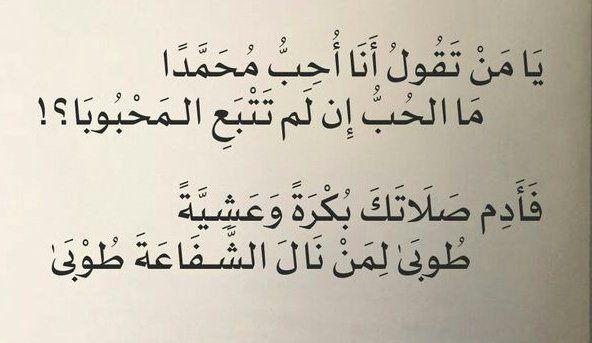 يَا مَنْ تَقُولُ أَنَا أُحِبُّ مُحَمَّدًا
مَا الحُبُّ إِن لَم تَتْبَعِ الـمَحْبُوبَا؟!
فَأَدِم صَلَاتَكَ بُكْرَةً وَعَشِيَّةً
طُوبَىٰ لِمَنْ نَالَ الشَّـفَاعَةَ طُوْبَىٰ